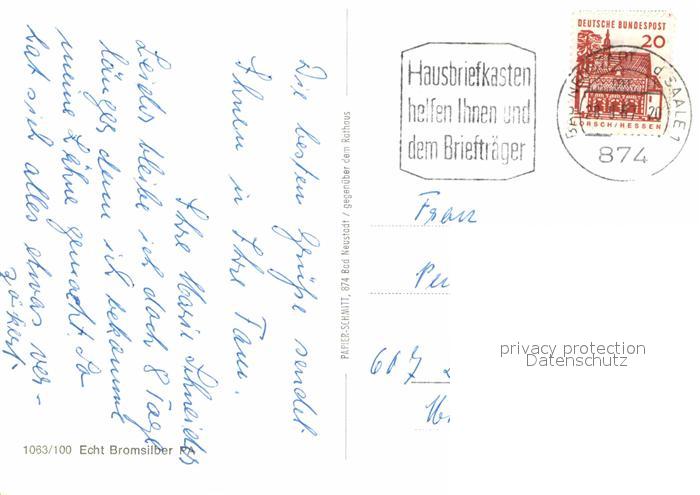 Die besten Grüße sendet
Ihnen u Ihre Fam.
Ihre Marie Schneider
Leider bleibe ich doch 8 Tage
länger, denn ich bekomme
meine Zähne gemacht! So
hat sich alles etwas ver-
zögert.
1063/100 Echt Bromsilber PA
PAPIER-SCHMITT, 874 Bad Neustadt / gegenüber dem Rathaus
Hausbriefkasten
helfen Ihnen und
dem Briefträger
DEUTSCHE BUNDESPOST
20
LORSCH/HESSEN
d. SAALE 1
874
Frau
Pe
607
privacy protection
Datenschutz